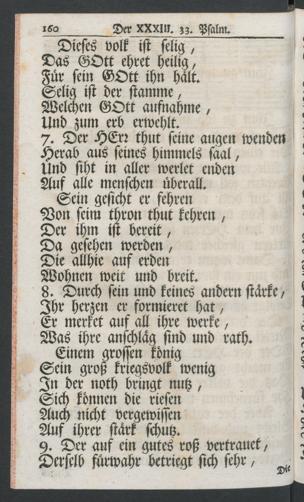 160 Der XXXIII. 33. Psalm.
Dieses volk ist selig,
Das GOtt ehret heilig,
Für sein GOtt ihn hält.
Selig ist der stamme,
Welchen GOtt aufnahme,
Und zum erb erwehlt.
7. Der HErr thut seine augen wenden
Herab aus seines himmels saal,
Und siht in aller werlet enden
Auf alle menschen überall.
Sein gesicht er kehren
Von seim thron thut kehren,
Der ihm ist bereit,
Da gesehen werden,
Die allhie auf erden
Wohnen weit und breit.
8. Durch sein und keines andern stärke,
Ihr herzen er formieret hat,
Er merket auf all ihre werke,
Was ihre anschläg sind und rath.
Einem grossen könig
Sein groß kriegsvolk wenig
In der noth bringt nutz,
Sich können die riesen
Auch nicht vergewissen
Auf ihrer stärk schutz.
9. Der auf ein gutes roß vertrauet,
Derselb fürwahr betriegt sich sehr,
Die